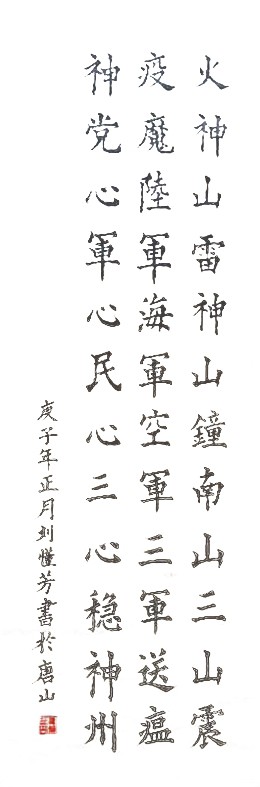 火神山雷神山鐘南山三山震
疫魔陸軍海軍空軍三軍送瘟
神党心軍心民心三心穏神州
庚子年正月刘惟芳書於唐山